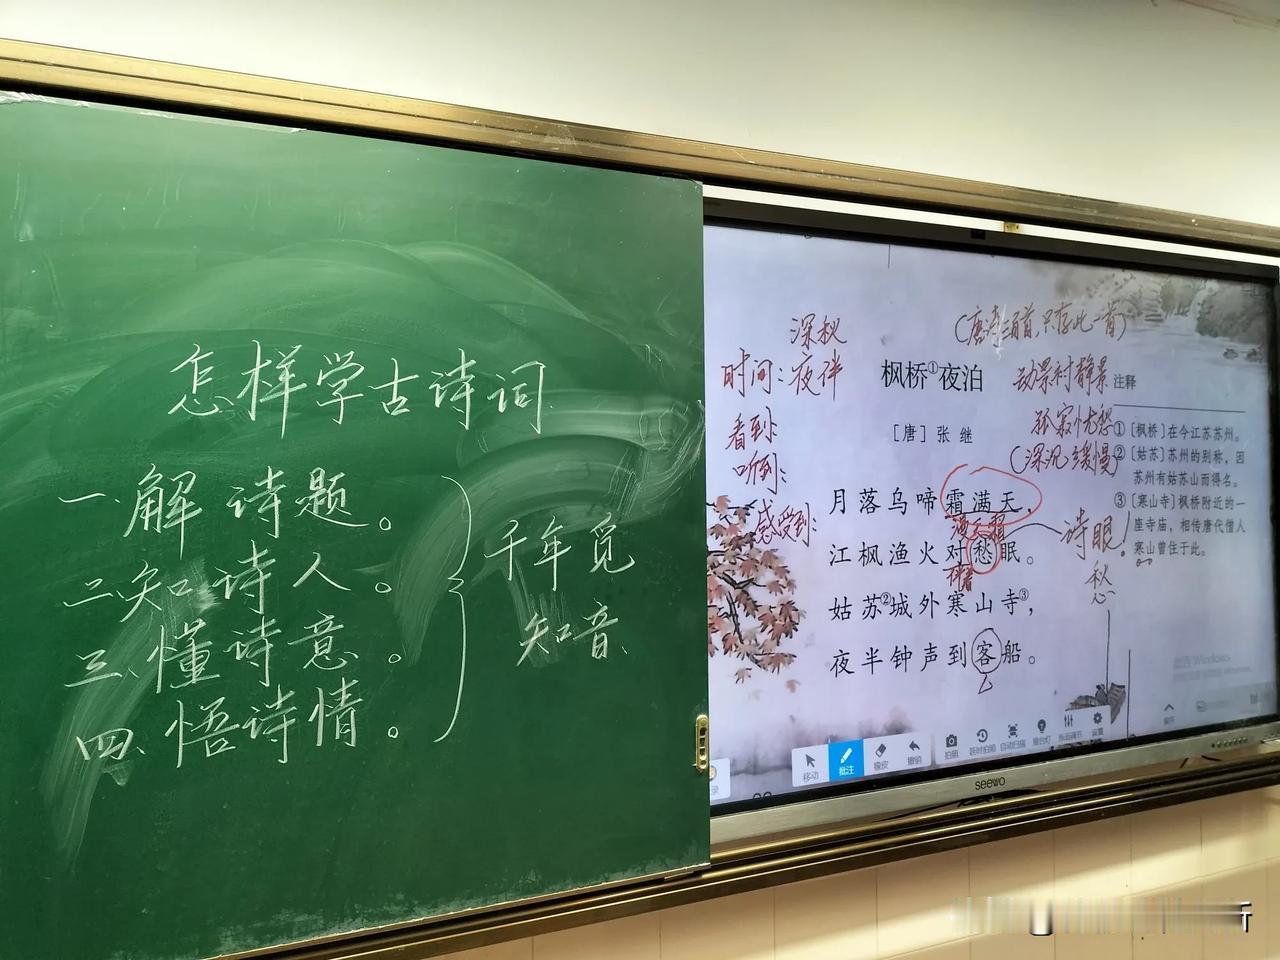 怎样学古诗词
一、解诗题。
二、知诗人。
三、懂诗意。
四、悟诗情。
千年觅
知音
深秋
时间:夜伴
看到
听到:
感受到:
(唐诗三百首,只存此一首)
枫桥①夜泊
[唐] 张 继
月落乌啼霜满天,
漫天霜
江枫渔火对愁眠。
伴着
姑苏②城外寒山寺③,
夜半钟声到客船。
动景衬静景
孤寂忧愁
(深沉 缓慢)
诗眼!
愁
注释
①[枫桥]在今江苏苏州。
②[姑苏]苏州的别称,因
苏州有姑苏山而得名。
③[寒山寺]枫桥附近的一
座寺庙,相传唐代僧人
寒山曾住于此。
激活 Windows
移动
批注
橡皮
撤销
拍照
延时拍照
自动扫描
展台灯
画面调节
设置
展开
录
seewo